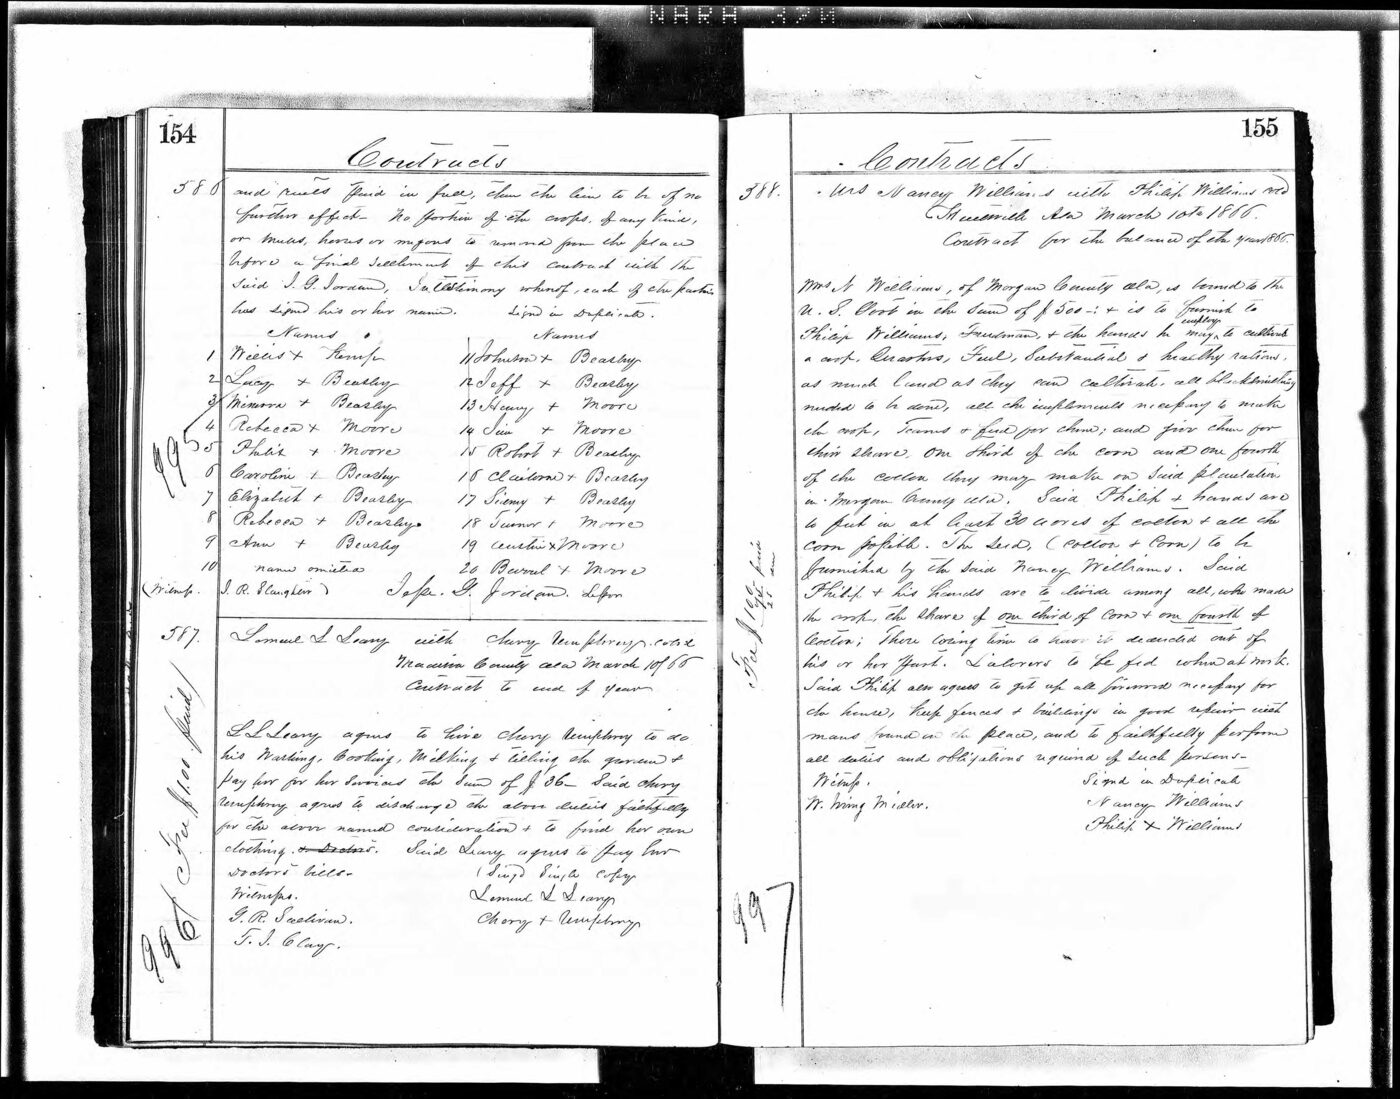 NARA
154
Contracts
586 and rents paid in full, then the lien to be of no
further effect - No portion of the crops, of any kind,
or mules, horses or wagons to remove from the place
before a final settlement of this contract with the
said J. G. Jordan, In testimony whereof, each of the parties
has signed his or her name. Signed in Duplicate.
Names Names
1 Willis + Kemp 11 Johnson + Beasley
2 Lucy + Beasley 12 Jeff + Beasley
3 Minerva + Beasley 13 Henry + Moore
4 Rebecca + Moore 14 Jim + Moore
5 Philip + Moore 15 Robert + Beasley
6 Caroline + Beasley 16 Claiborn + Beasley
7 Elizabeth + Beasley 17 + Beasley
8 Rebecca + Beasley 18 + Moore
9 Ann + Beasley 19 Austin + Moore
10 name omitted 20 + Moore
995
(Witness. J. R. Slaughter) G. Jordan
587. Lemuel L Leary with Chery Umphrey
Madison County Ala March 10/66
Contract to end of year
L L Leary agrees to hire Chery Umphrey to do
his Washing, Cooking, Milking & tilling the garden &
pay her for her services the Sum of $36- Said Chery
Umphrey agrees to discharge the above duties faithfully
for the above named consideration & to find her own
clothing & Doctors. Said Leary agrees to pay her
Doctors bills-
(Sing'd Single Copy
Witness. Lemuel L Leary
G. R. Sullivan. Chery + Umphrey
T. J. Clay.
Fee $1.00 paid
996
155
Contracts
588. Mrs Nancy Williams with Philip Williams
Huntsville Ala March 10th 1866.
Contract for the balance of the year 1866.
Mrs N Williams, of Morgan County Ala, is bound to the
U. S. Govt in the Sum of $500-; & is to furnish to
Philip Williams, Freedman, & the hands he may employ to cultivate
a crop, Quarters, Fuel, Substantial & healthy rations,
as much land as they can cultivate, all blacksmithing
needed to be done, all the implements necessary to make
the crop, Teams & feed for them; and give them for
their share, one third of the corn and one fourth
of the cotton they may make on said plantation
in Morgan County Ala. Said Philip & hands are
to put in at least 30 acres of cotton & all the
corn possible. The seed, (Cotton & Corn) to be
furnished by the said Nancy Williams. Said
Philip & his hands are to divide among all, who made
the crop, the share of one third of Corn & one fourth of
Cotton; Those losing time to have it deducted out of
his or her part. Laborers to be fed when at work.
Said Philip also agrees to get up all firewood necessary for
the house, keep fences & buildings in good repair with
means found on the place, and to faithfully perform
all duties and obligations required of such persons-
Witness. Signed in Duplicate
W. Irving Nancy Williams
Philip + Williams
997